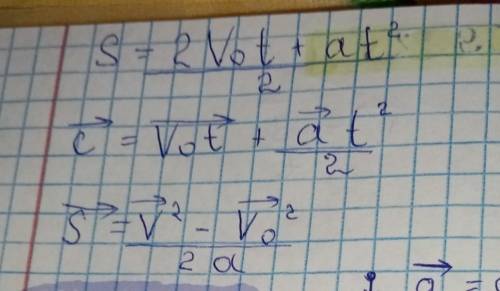 S = (2V₀t + at²)/2
c⃗ = V₀t⃗ + a⃗t²/2
S⃗ = (V⃗² - V⃗₀²)/2a